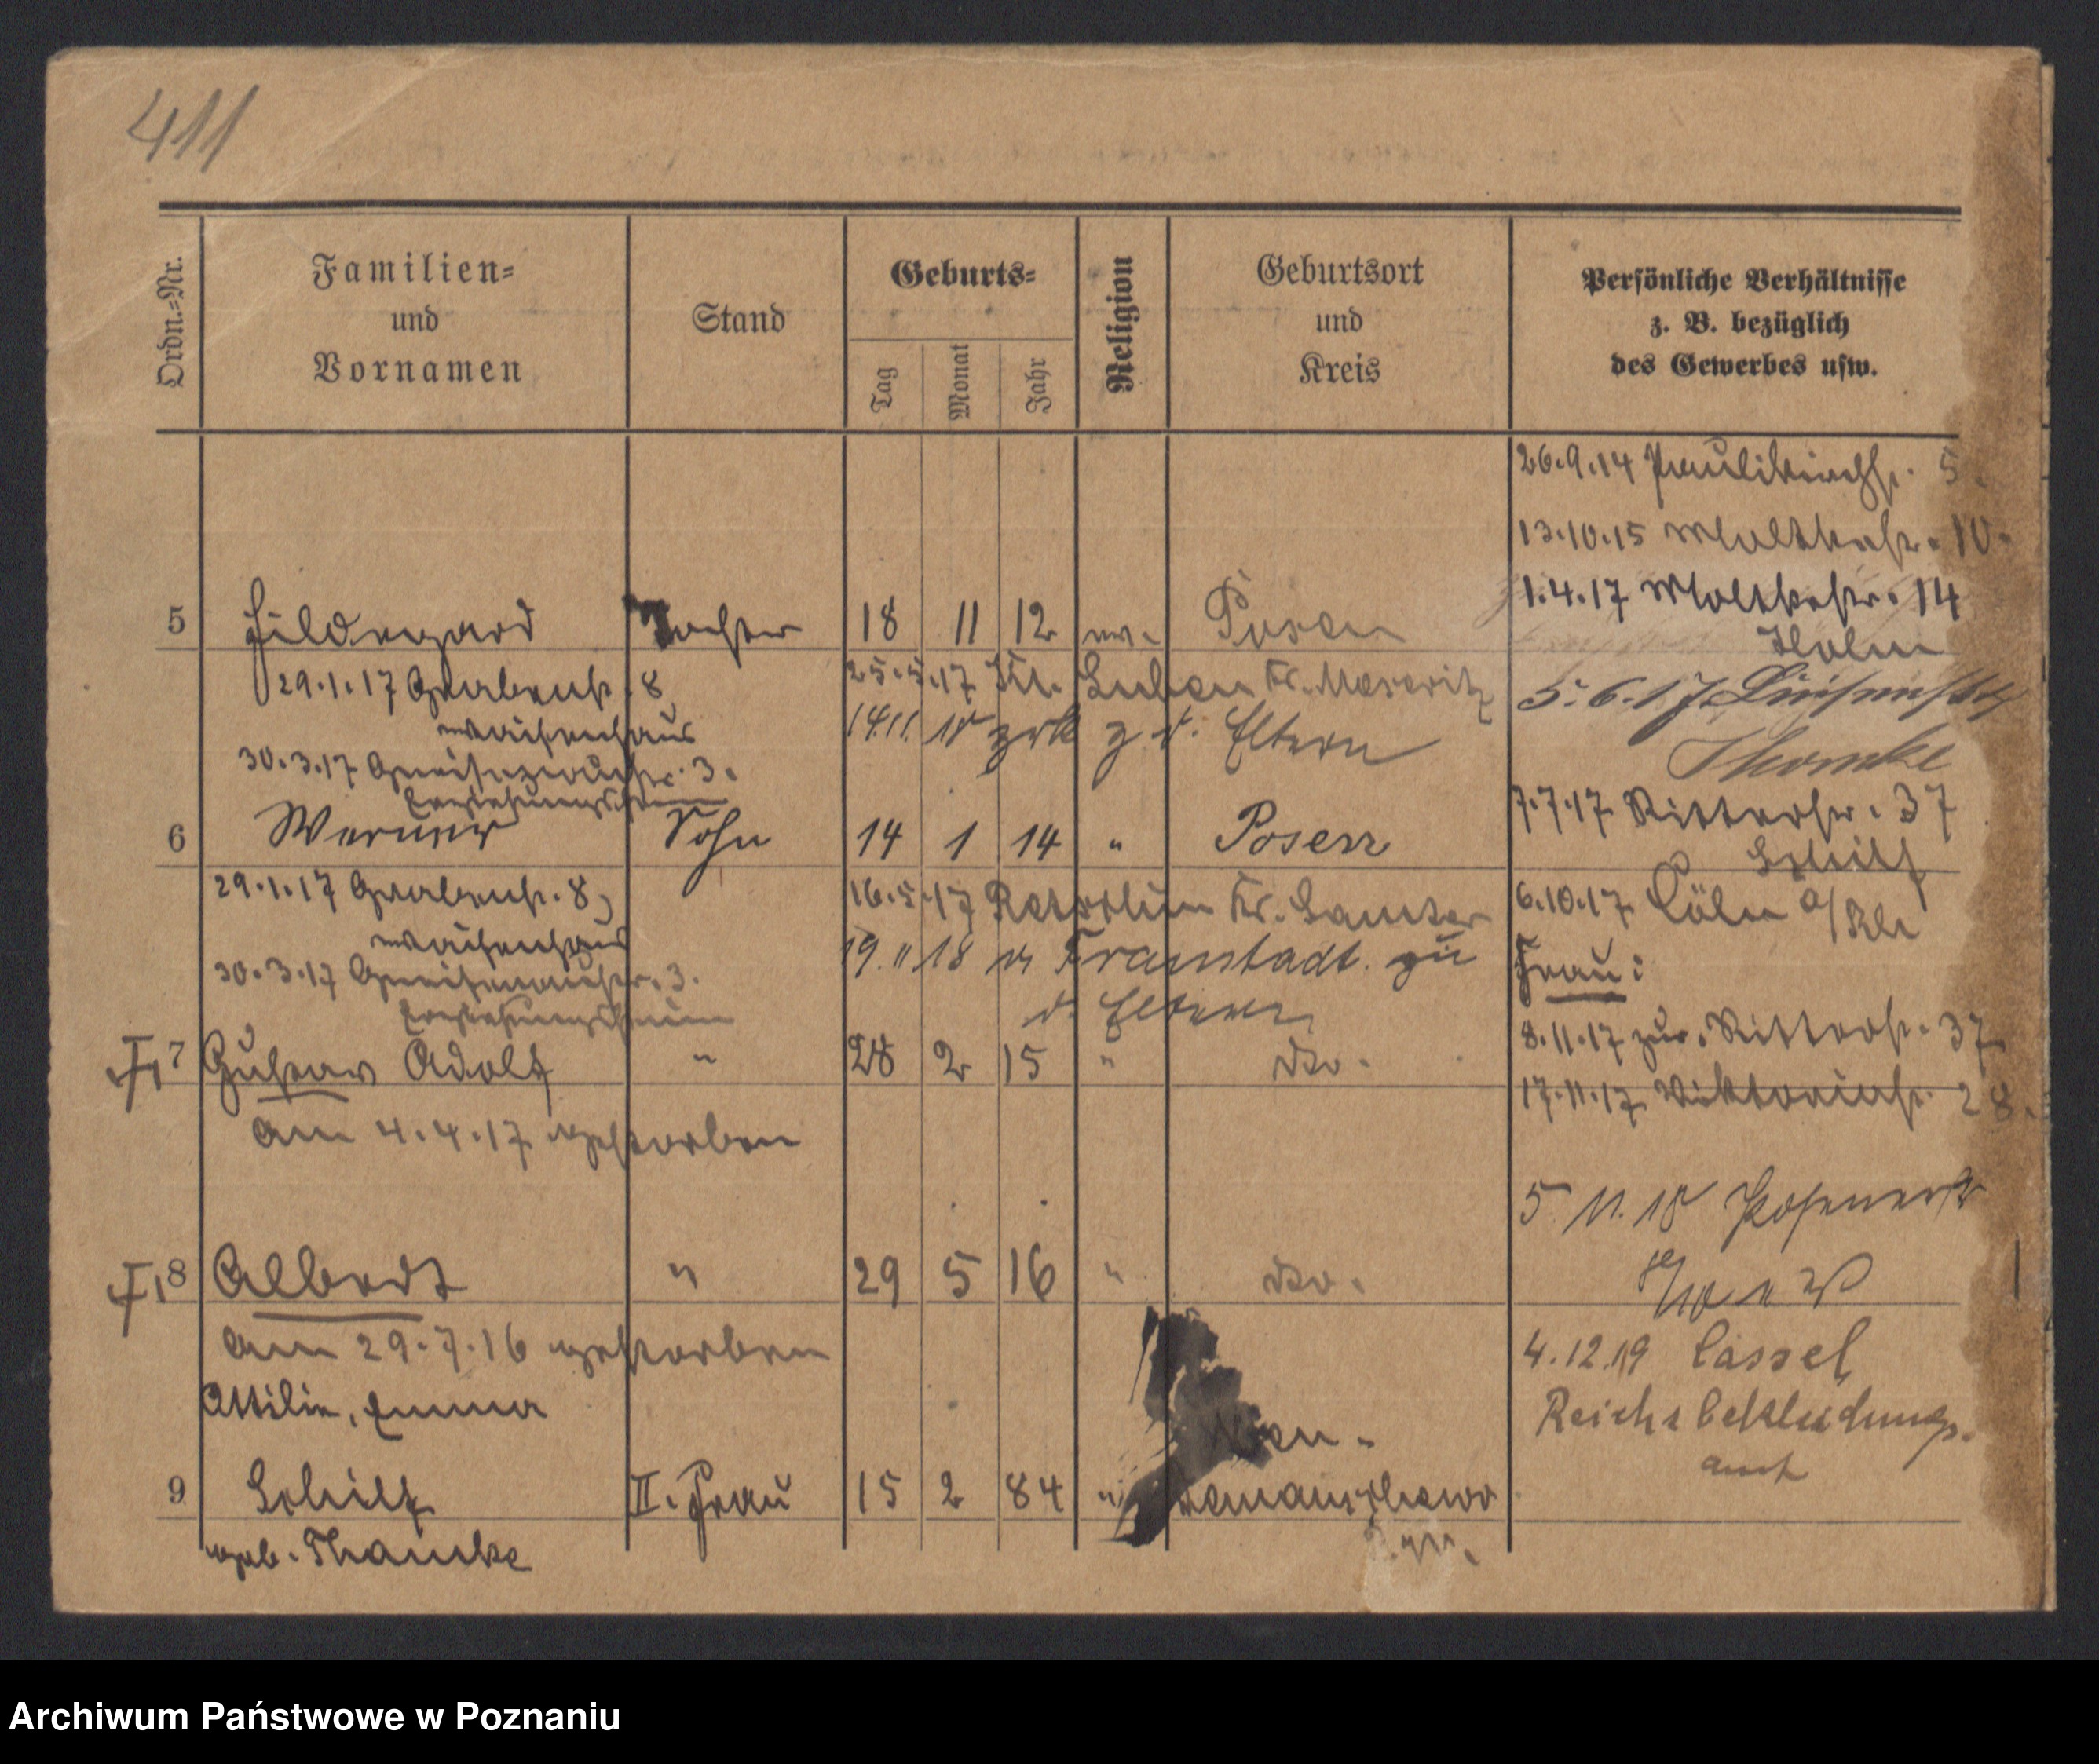 411
Ordn.-Nr.
Familien-
und
Vornamen
Stand
Geburts-
Tag
Monat
Jahr
Religion
Geburtsort
und
Kreis
Persönliche Verhältnisse
z. B. bezüglich
des Gewerbes usw.
26.9.14 Paulikirchstr. 5.
13.10.15 Moltkestr. 10.
1.4.17 Moltkestr. 14
5 Hildegard Tochter 18 11 12 ev. Posen
29.1.17 Grabenstr. 8
Waisenhaus
30.3.17 Gneisenaustr. 3.
Erziehungsheim
25.5.17 Kl. Kr. Meseritz
14.11.18 z. d. Eltern
5.6.17
Thomke
7.7.17 Ritterstr. 37
Schilf
6 Werner Sohn 14 1 14 " Posen
29.1.17 Grabenstr. 8,
Waisenhaus
30.3.17 Gneisenaustr. 3.
Erziehungsheim
16.5.17 Kr. Samter
19. 11 18 v Fraustadt. zu
d. Eltern
6.10.17 Cöln a/Rh
Frau:
8.11.17 zur. Ritterstr. 37
17.11.17 Viktoriastr. 28.
7 Gustav Adolf " 28 2 15 " do.
am 4.4.17 gestorben
5. 11. 18
8 Albert " 29 5 16 " do.
am 29.7.16 gestorben
4.12.19 Cassel,
Reichsbekleidungs-
amt
Ottilie, Emma
9 Schilf II. Frau 15 2 84 "
geb. Thomke
Archiwum Państwowe w Poznaniu